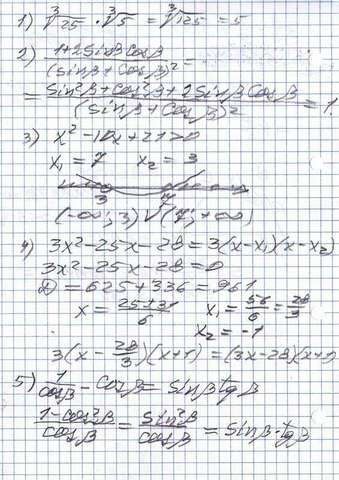 1) ∛25 · ∛5 = ∛125 = 5
2) (1+2Sinβ Cosβ)/(Sinβ + Cosβ)² =
= (Sin²β + Cos²β + 2Sinβ Cosβ)/(Sinβ + Cosβ)² = 1.
3) x² - 10x + 21 > 0
x₁ = 7 x₂ = 3
3 7
(-∞; 3) ∨ (7; +∞)
4) 3x² - 25x - 28 = 3(x - x₁)(x - x₂)
3x² - 25x - 28 = 0
D = 625 + 336 = 961
x = (25 ± 31)/6 x₁ = 56/6 = 28/3
x₂ = -1
3(x - 28/3)(x+1) = (3x - 28)(x+1)
5) 1/cosβ - Cosβ = Sinβ tgβ
(1 - cos²β)/cosβ = Sin²β/cosβ = Sinβ · tgβ